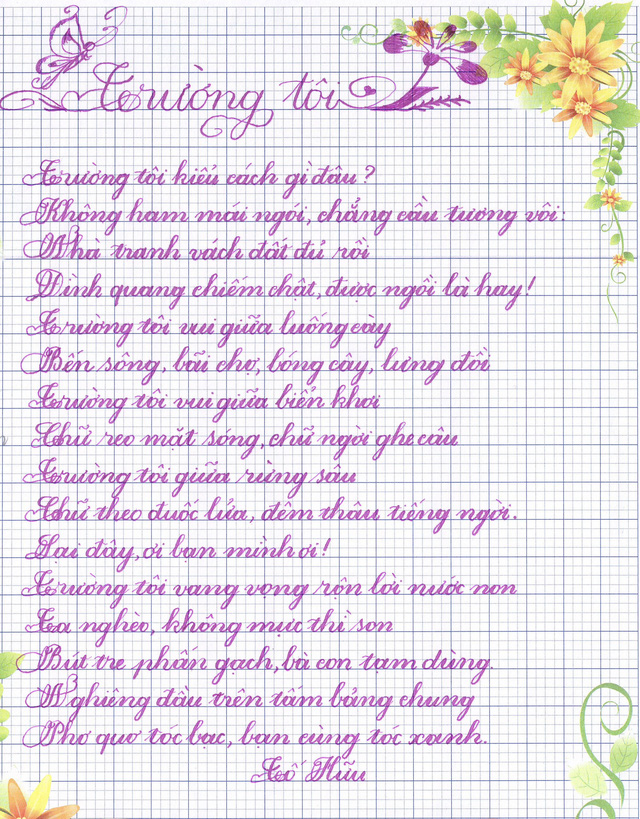 Trường tôi
Trường tôi kiểu cách gì đâu?
Không ham mái ngói, chẳng cầu tương vôi:
Nhà tranh vách đất đủ rồi
Đình quang chiếm chật, được ngồi là hay!
Trường tôi vui giữa luống cày
Bến sông, bãi chợ, bóng cây, lưng đồi
Trường tôi vui giữa biển khơi
Chữ reo mặt sóng, chữ ngời ghe câu
Trường tôi giữa rừng sâu
Chữ theo đuốc lửa, đêm thâu tiếng ngời.
Lại đây, ơi bạn mình ơi!
Trường tôi vang vọng rộn lời nước non
Ta nghèo, không mực thì son
Bút tre phấn gạch, bà con tạm dùng.
Nghiêng đầu trên tấm bảng chung
Phơ quơ tóc bạc, bạn cùng tóc xanh.
Tố Hữu